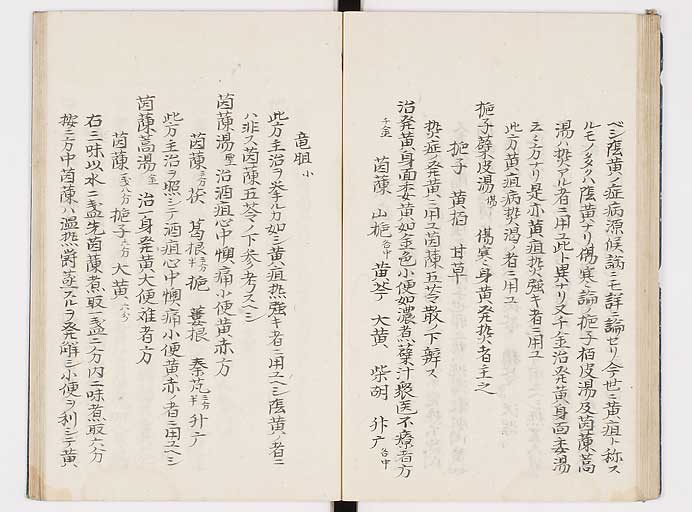 ベシ陰黄ノ症病源候論ニモ詳ニ論ゼリ今世ニ黄疸ト称ス
ルモノ多クハ陰黄ナリ傷寒論ノ梔子柏皮湯及茵蔯蒿
湯ハ熱アル者ニ用ユ此ト異ナリ又千金治発黄身面委湯
五ミ方ナリ是亦黄疸熱強キ者ニ用ユ
此方黄疸病熱渇ノ者ニ用ユ
梔子蘗皮湯 傷寒身黄発熱者主之
梔子 黄栢 甘草
熱症発黄ニ用ユ茵蔯五苓散ノ下辨ス
治発黄身面委黄如金色小便如濃煮蘗汁衆医不療者方
千金 茵蔯 山梔 各中 黄芩 大黄 柴胡 升广 各中
竜胆 小
此方主治ヲ挙ルカ如ミ黄疸熱強キ者ニ用ユヘシ陰黄ノ者ニ
ハ非ス茵蔯五苓ノ下参考スヘシ
茵蔯湯 聖 治酒疸心中懊痛小便黄赤方
茵蔯 三分 茯 葛根 五分 梔 蔞根 秦艽 三分 升广
此方主治ヲ照シテ酒疸心中懊痛小便黄赤ノ者ニ用ユヘシ
茵蔯蒿湯 金 治一身発黄大便难者方
茵蔯 梔子 大黄
右三味以水二盞先茵蔯煮取一盞二分内二味煮取六分
按ニ方中茵蔯ハ温熱欝蒸スルヲ発觧シ小便ヲ利シテ黄